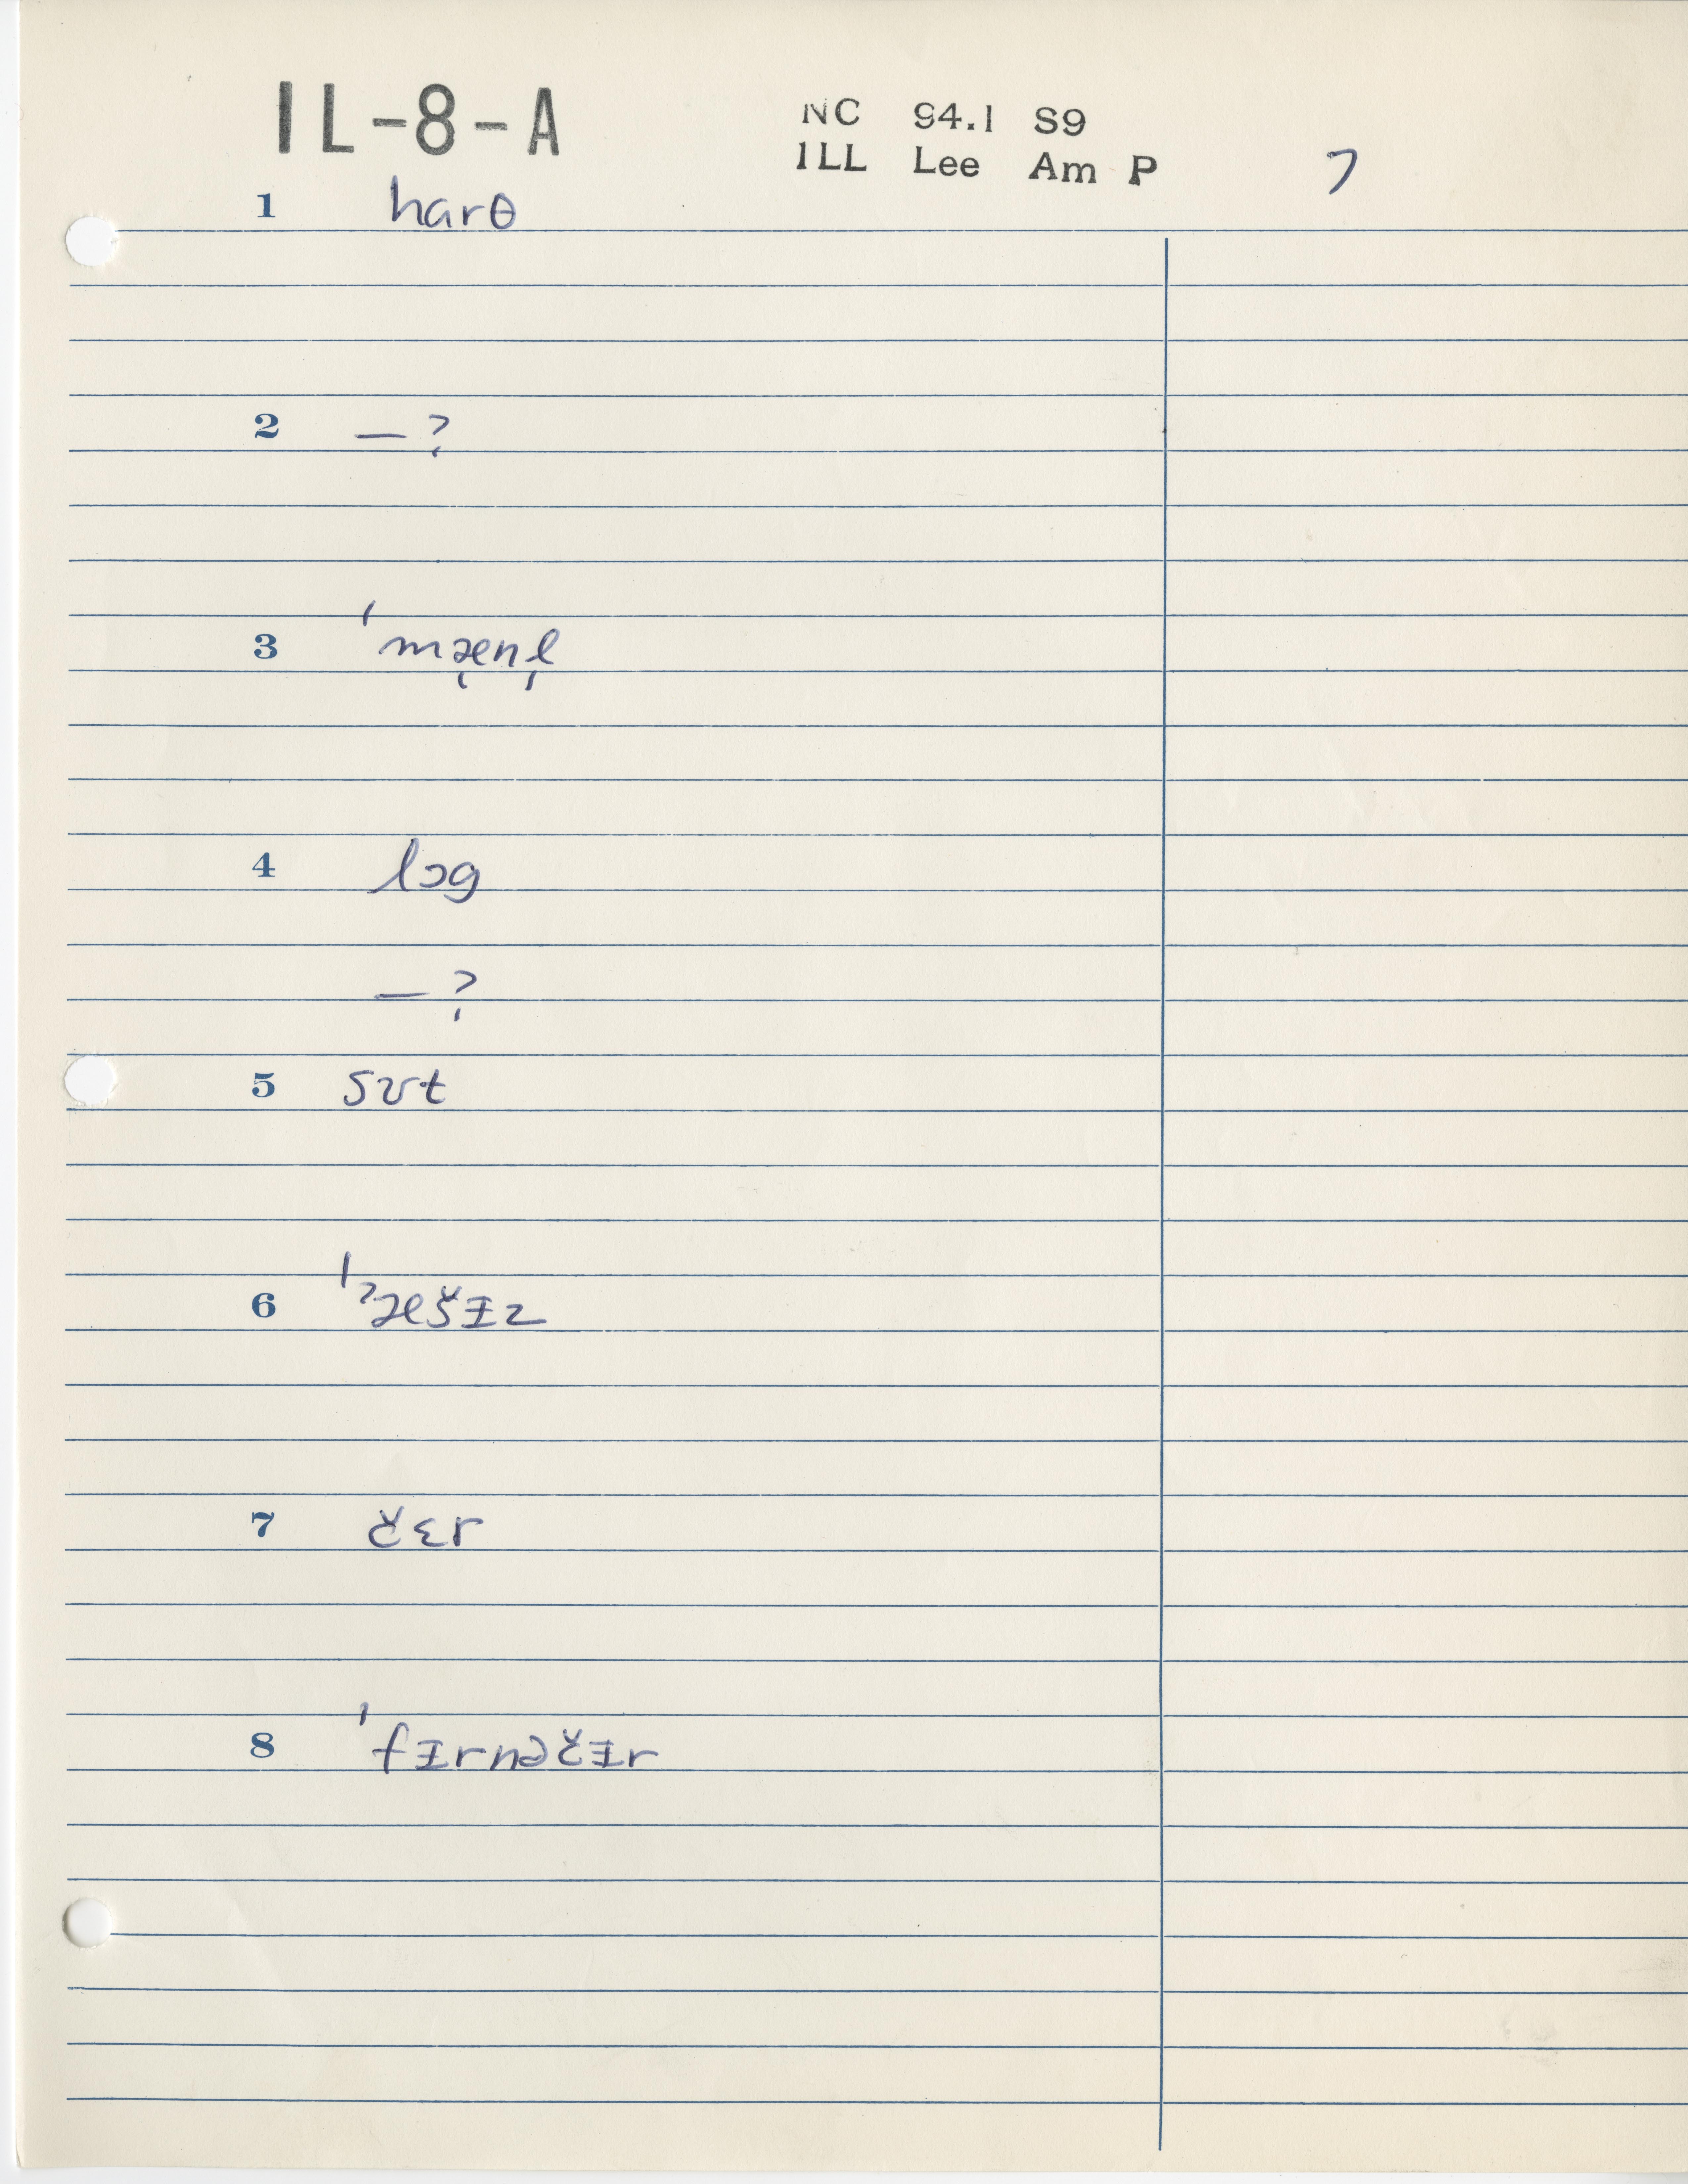 IL-8-A
NC 94.1 S9
ILL Lee Am P
7
1 harθ
2 — ?
3 ˈmæ̜nl̩
4 lɔg
— ?
5 sʊt
6 ˈˀæšɪ̵z
7 čɛr
8 ˈfɪ̵rnəčɪ̵r